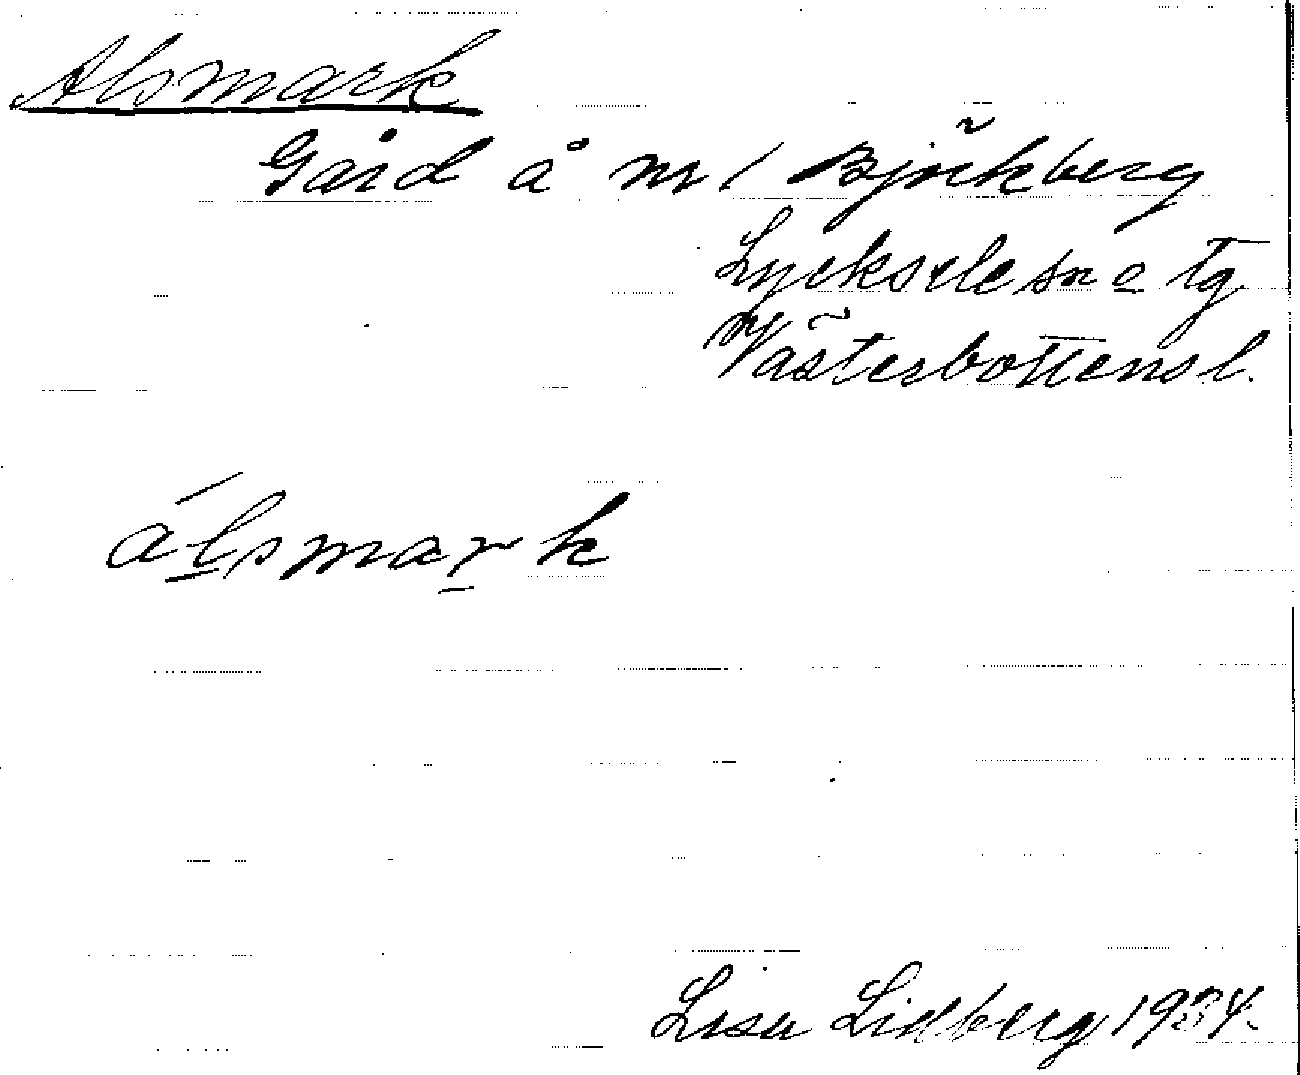 Alsmark
Gård å nr 1 Björkberg
Lycksele sn o tg
Västerbottens l.
álsmark
Lisa Lidberg 1934.